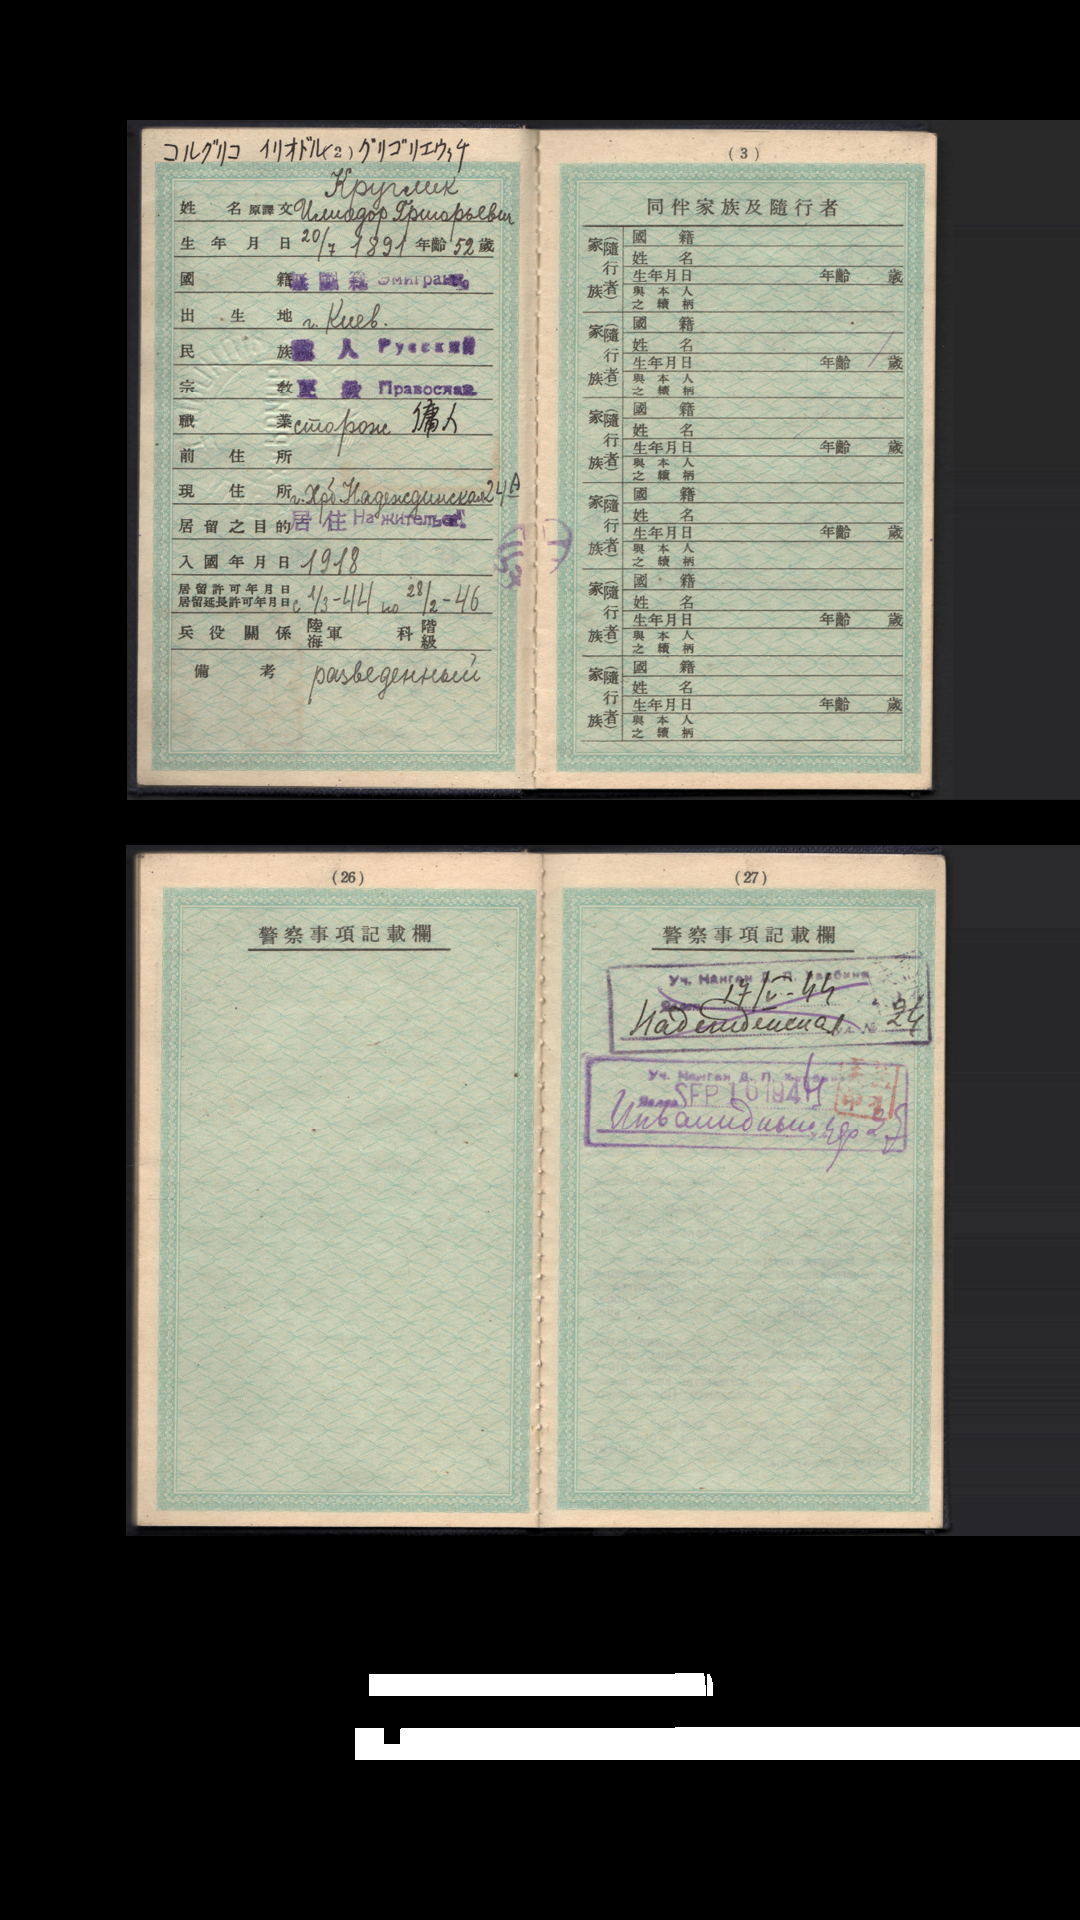 コルグリコ イリオドル (2) グリゴリエウィチ
Круглик
姓名 原譯文 Илиодор Григорьевич
生年月日 20/7 1891 年齡 52 歲
國籍 無國籍 Эмигрант
出生地 г. Киев.
民族 露人 Русский
宗教 正教 Православ.
職業 сторож 傭人
前住所
現住所 г. Хрб. Надеждинская 24А
居留之目的 居住 На жительс.
入國年月日 1918
居留許可年月日
居留延長許可年月日 с 1/3-44 по 28/2-46
兵役關係 陸海軍 科 階級
備考 разведенный
(3)
同伴家族及隨行者
家族(隨行者)
國籍
姓名
生年月日 年齡 歲
與本人之續柄
家族(隨行者)
國籍
姓名
生年月日 年齡 歲
與本人之續柄
家族(隨行者)
國籍
姓名
生年月日 年齡 歲
與本人之續柄
家族(隨行者)
國籍
姓名
生年月日 年齡 歲
與本人之續柄
家族(隨行者)
國籍
姓名
生年月日 年齡 歲
與本人之續柄
家族(隨行者)
國籍
姓名
生年月日 年齡 歲
與本人之續柄
(26)
警察事項記載欄
(27)
警察事項記載欄
Уч. Манган Д. П. Харбина
17/V-44
Надежденская ул. № 24
Уч. Манган Д. П.
SEP 10 1944